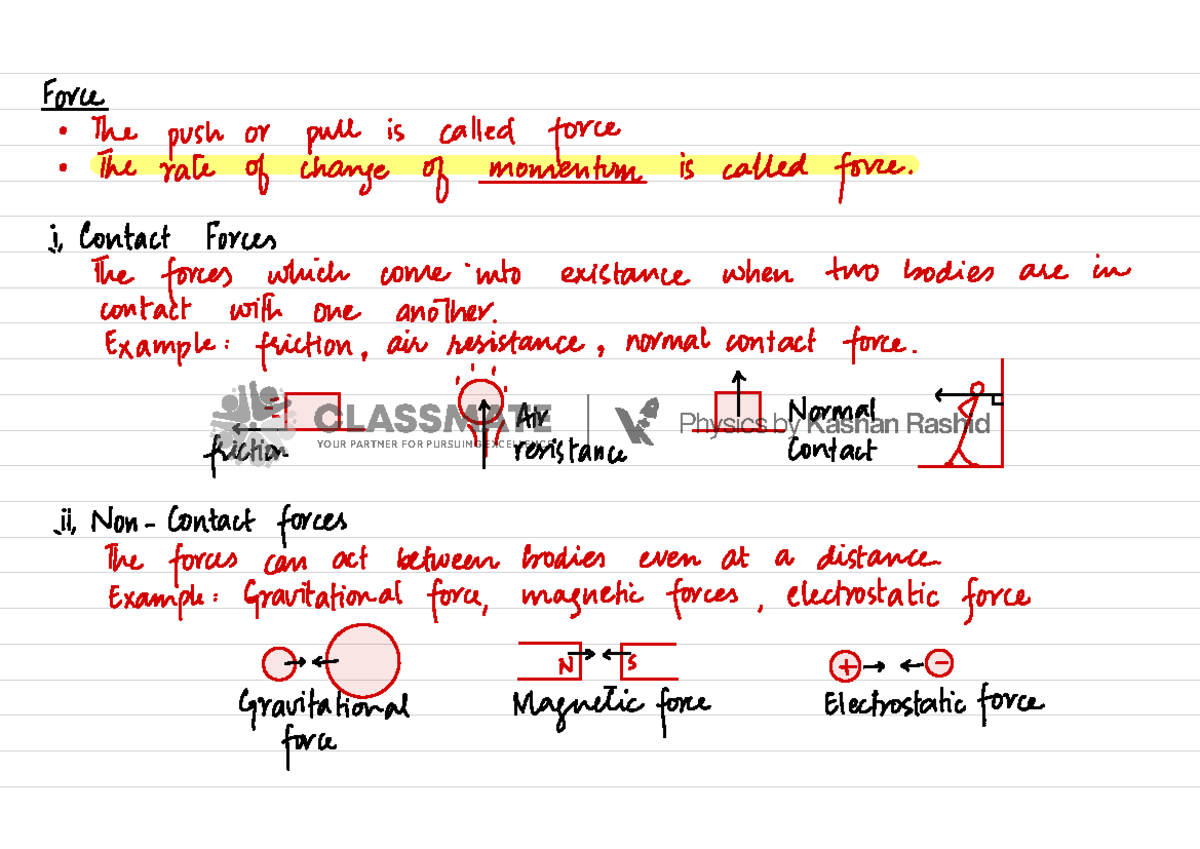 Force
• The push or pull is called force
• The rate of change of momentum is called force.
i, Contact Forces
The forces which come into existance when two bodies are in
contact with one another.
Example: friction, air resistance, normal contact force.
CLASSMATE
YOUR PARTNER FOR PURSUING EXCELLENCE
Physics by Kashan Rashid
friction
Air
resistance
Normal
Contact
ii, Non-Contact forces
The forces can act between bodies even at a distance
Example: Gravitational force, magnetic forces, electrostatic force
N S
+ −
Gravitational
force
Magnetic force
Electrostatic force